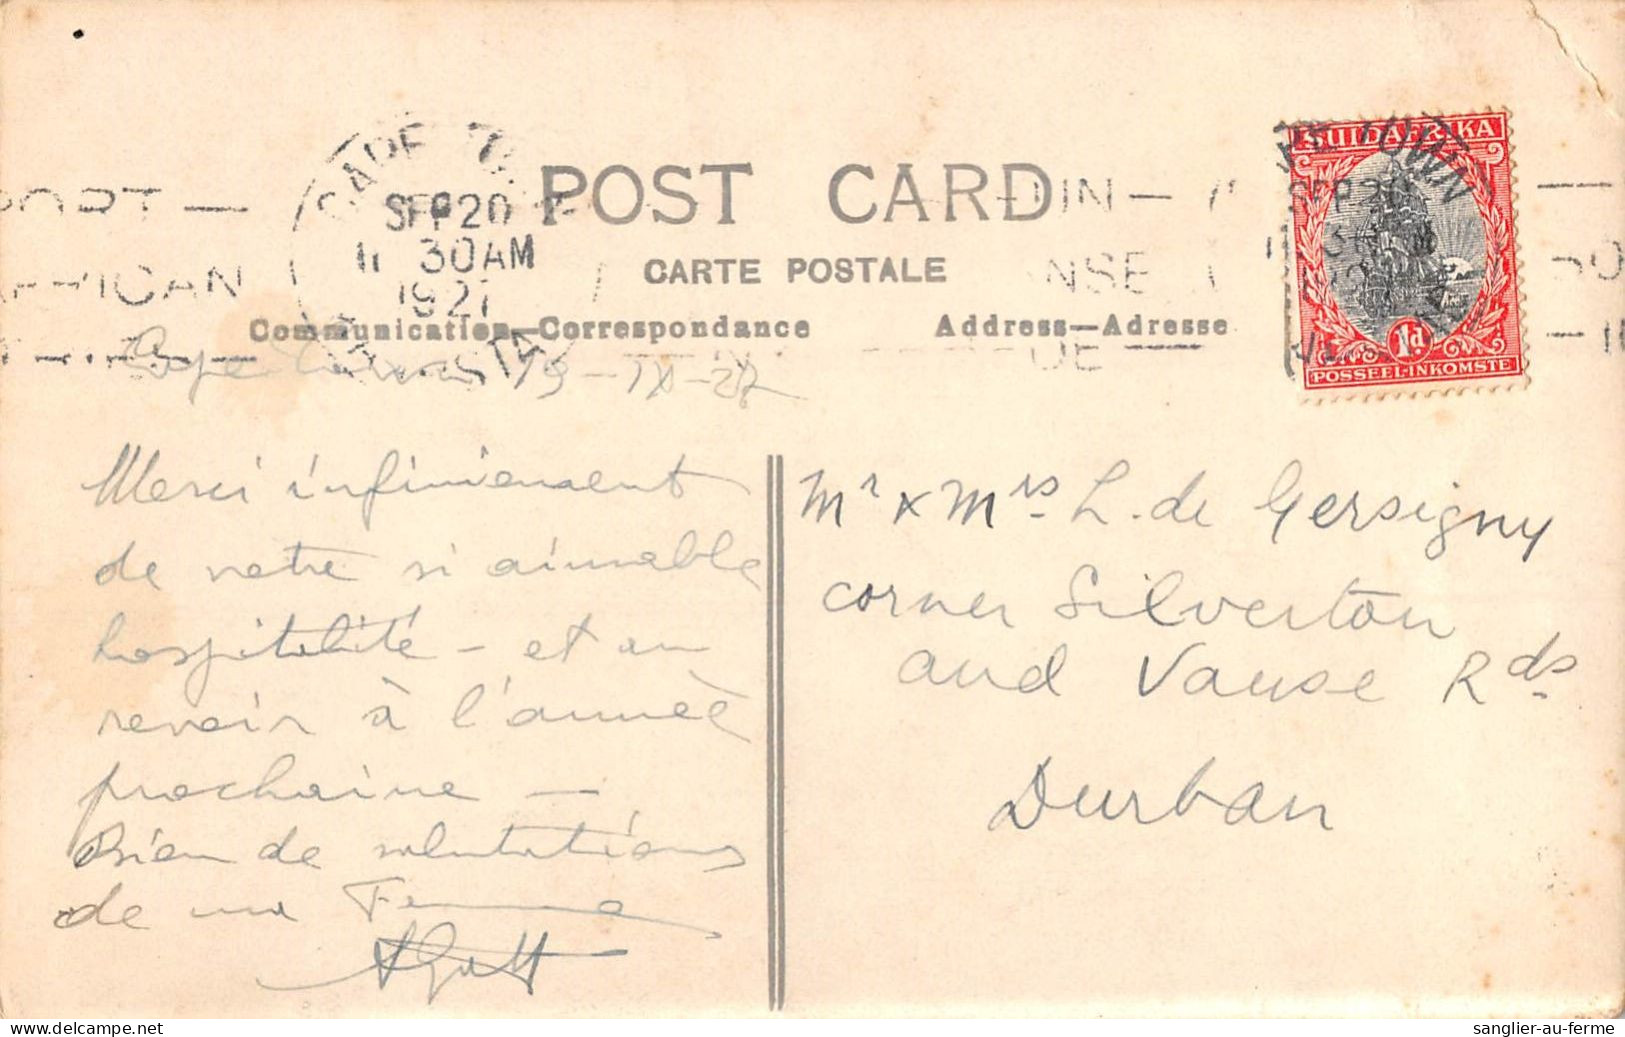 POST CARD
CARTE POSTALE
Communication—Correspondance
Address—Adresse
CAPE TOWN
SEP 20
11 30 AM
1927
PORT —
AFRICAN
SUIDAFRIKA
1d
POSSEEL-INKOMSTE
Capetown 19-IX-27
Merci infiniment
de votre si aimable
hospitalité – et au
revoir à l'année
prochaine –
Bien de salutations
de ma Femme
Mr & Mrs. L. de Gersigny
corner Silverton
and Vause Rds
Durban
delcampe.net website
sanglier-au-ferme